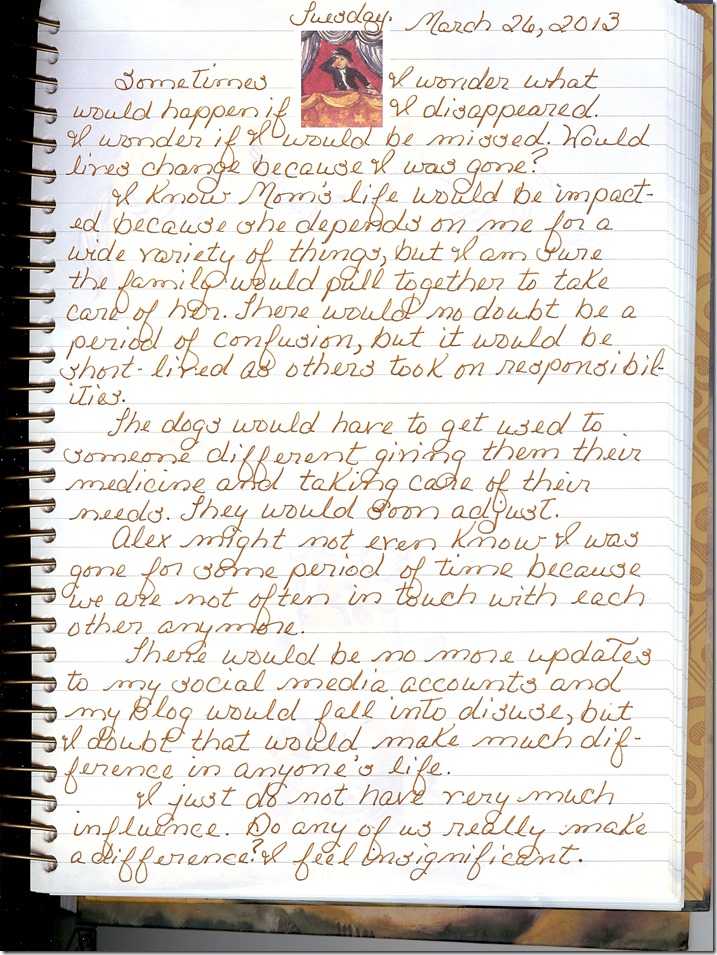 Tuesday, March 26, 2013
Sometimes I wonder what
would happen if I disappeared.
I wonder if I would be missed. Would
lives change because I was gone?
I know Mom's life would be impact-
ed because she depends on me for a
wide variety of things, but I am sure
the family would pull together to take
care of her. There would no doubt be a
period of confusion, but it would be
short-lived as others took on responsibil-
ities.
The dogs would have to get used to
someone different giving them their
medicine and taking care of their
needs. They would soon adjust.
Alex might not even know I was
gone for some period of time because
we are not often in touch with each
other anymore.
There would be no more updates
to my social media accounts and
my Blog would fall into disuse, but
I doubt that would make much dif-
ference in anyone's life.
I just do not have very much
influence. Do any of us really make
a difference? I feel insignificant.